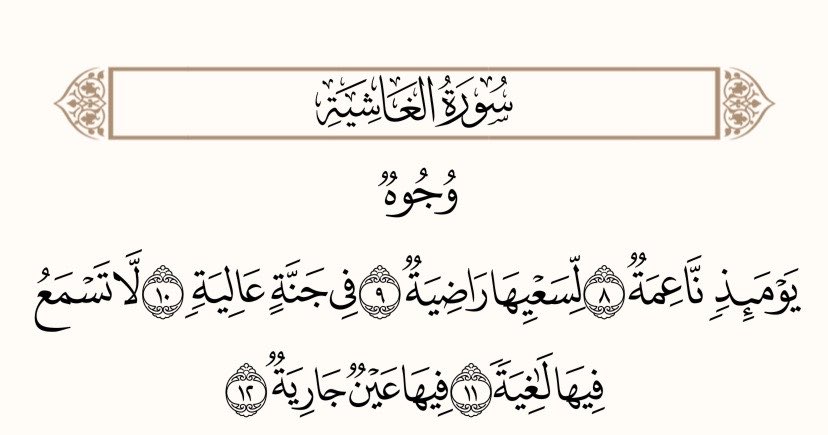 سُورَةُ الغَاشِيَةِ
وُجُوهٌ
يَوْمَئِذٍ نَّاعِمَةٌ ٨ لِّسَعْيِهَا رَاضِيَةٌ ٩ فِى جَنَّةٍ عَالِيَةٍ ١٠ لَّا تَسْمَعُ
فِيهَا لَٰغِيَةً ١١ فِيهَا عَيْنٌ جَارِيَةٌ ١٢